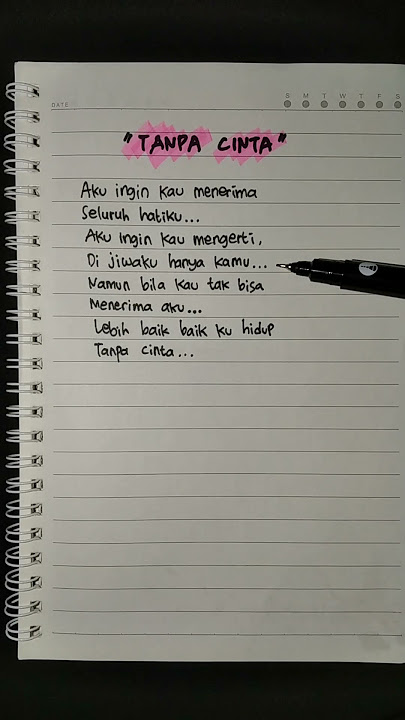 DATE
S M T W T F S
"TANPA CINTA"
Aku ingin kau menerima
Seluruh hatiku...
Aku ingin kau mengerti,
Di jiwaku hanya kamu...
Namun bila kau tak bisa
Menerima aku...
Lebih baik baik ku hidup
Tanpa cinta...